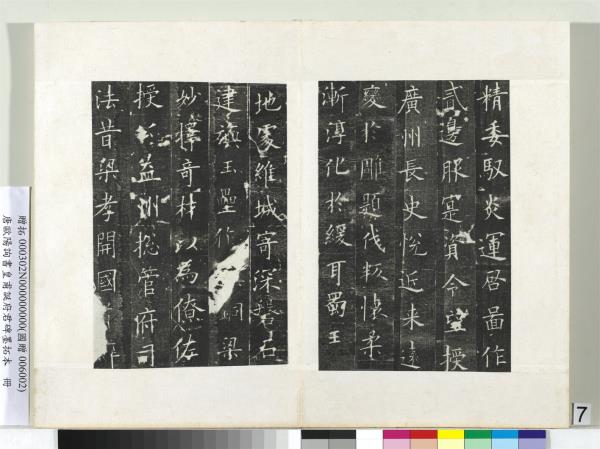 精委馭炎運啓啚作
貳邊服寔資令望授
廣州長史悅近来遠
變扵雕題伐叛懷柔
漸淳化扵緩耳蜀王
地處維城寄深磐石
建旟玉壘作銅梁
妙擇奇材以為僚佐
授益州揔管府司
法昔梁孝開國
贈拓 000302N000000000(國贈 006002)
唐歐陽詢書皇甫誕府君碑墨拓本 冊
7